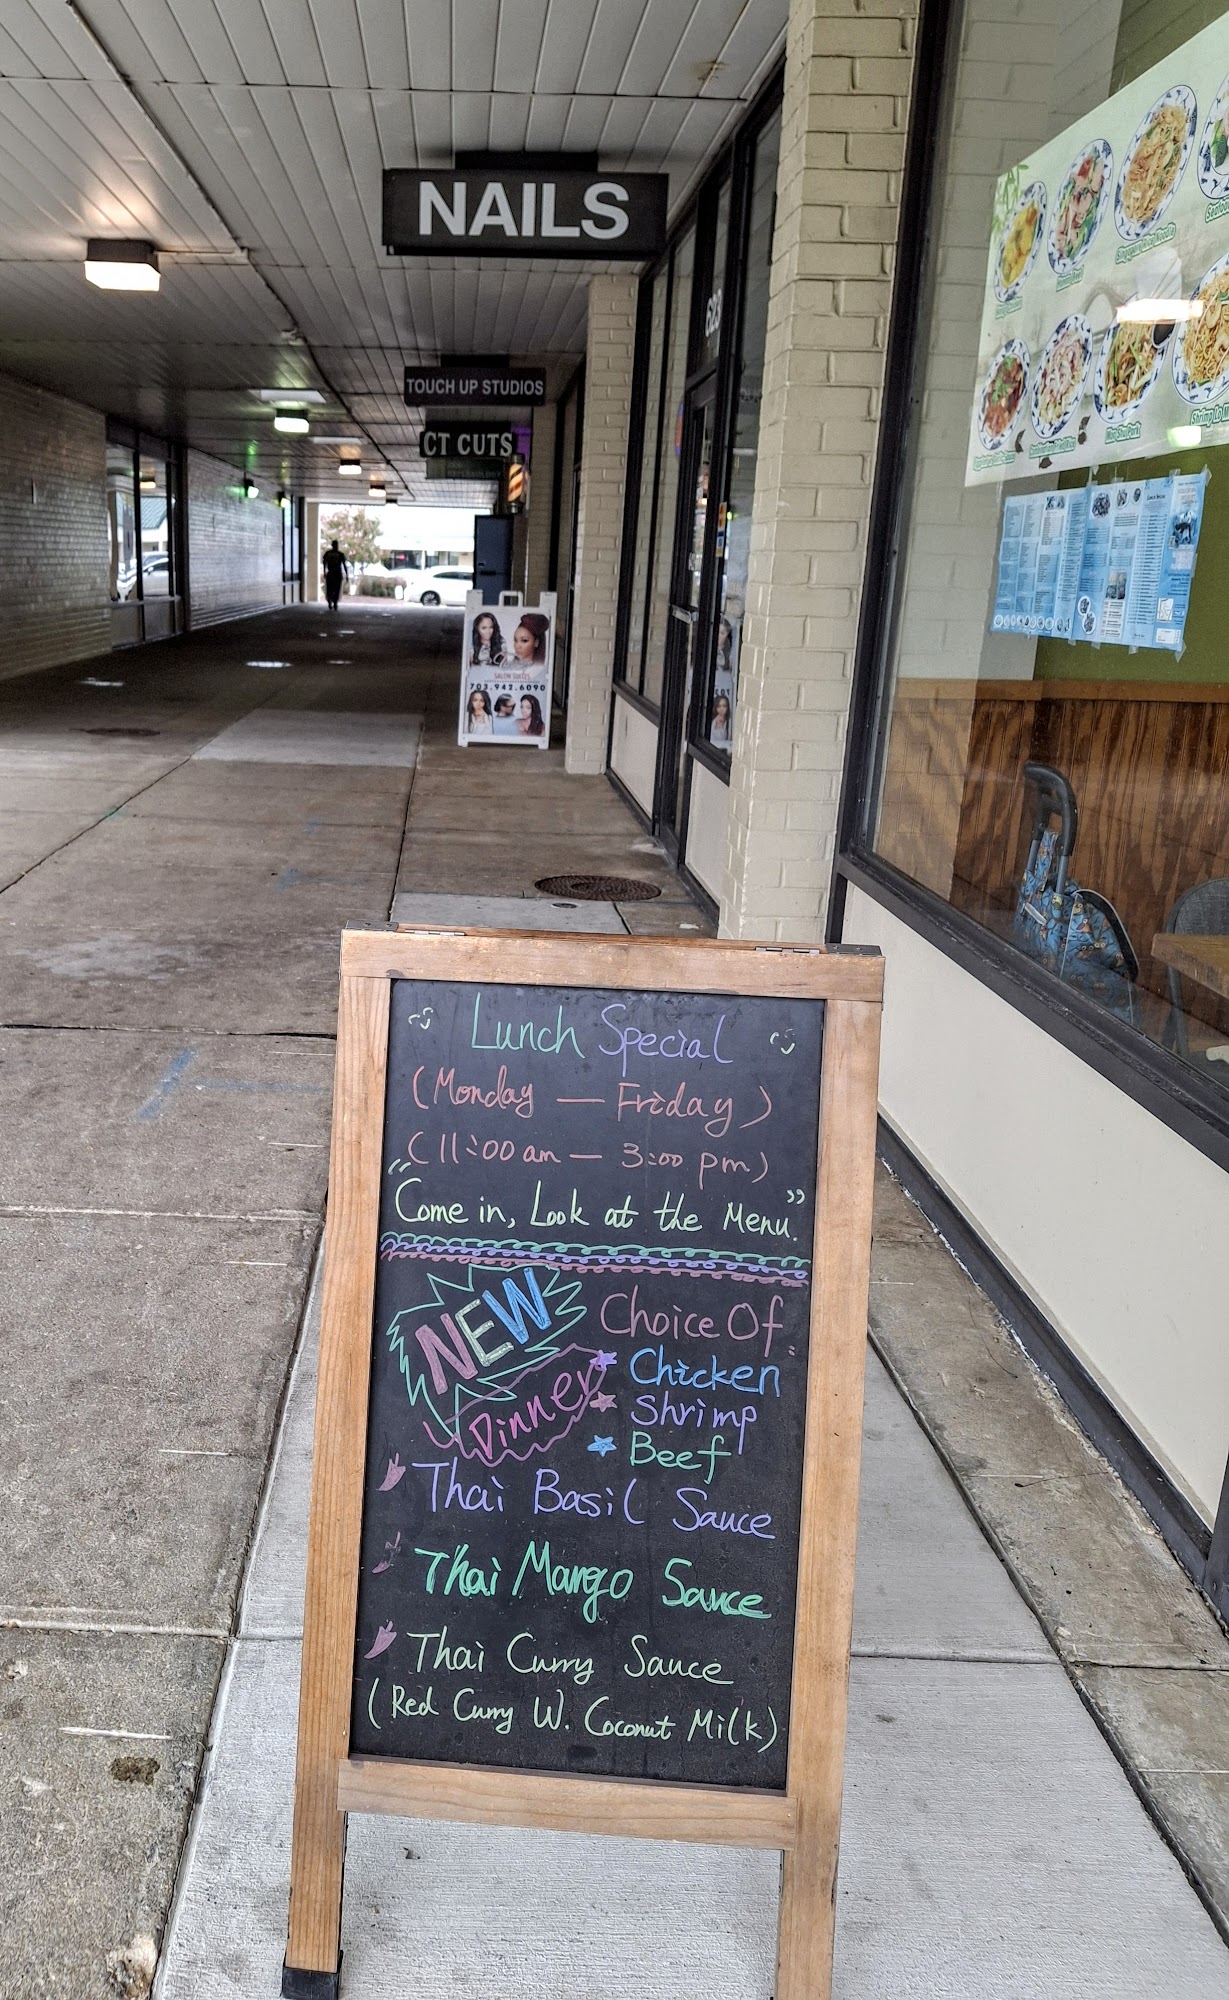 NAILS
623
TOUCH UP STUDIOS
CT CUTS
SALON SUITES
703.942.6090
Singapore Rice Noodle
Seafood
Shrimp Lo M
Moo Shu Pork
Lunch Special
(Monday — Friday)
(11:00 am — 3:00 pm)
"Come in, Look at the Menu."
NEW
Dinner
Choice Of:
Chicken
Shrimp
Beef
Thai Basil Sauce
Thai Mango Sauce
Thai Curry Sauce
(Red Curry W. Coconut Milk)